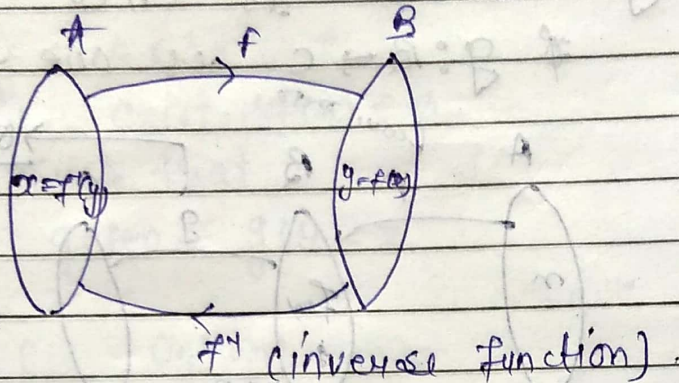 A f B
x=f⁻¹(y) y=f(x)
f⁻¹ (inverse function).